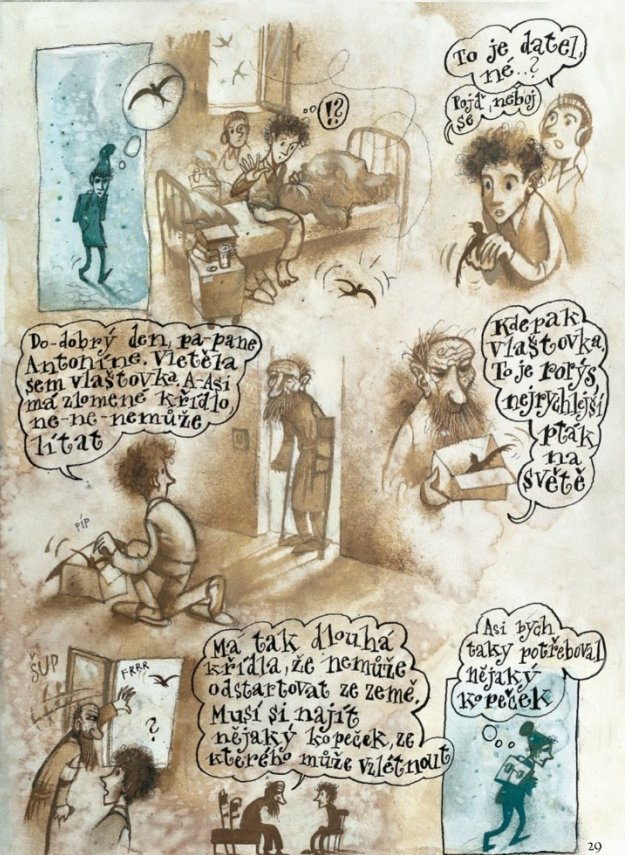 !?
To je datel,
né..?
Pojď, neboj
se
Do-dobrý den, pa-pane
Antoníne. Vletěla
sem vlaštovka. A-Asi
má zlomené křídlo,
ne-ne-nemůže
lítat
Kdepak
vlaštovka.
To je rorýs,
nejrychlejší
pták
na
světě
píp
ŠUP
FRRR
?
Má tak dlouhá
křídla, že nemůže
odstartovat ze země.
Musí si najít
nějaký kopeček, ze
kterého může vzlétnout
Asi bych
taky potřeboval
nějaký
kopeček
29